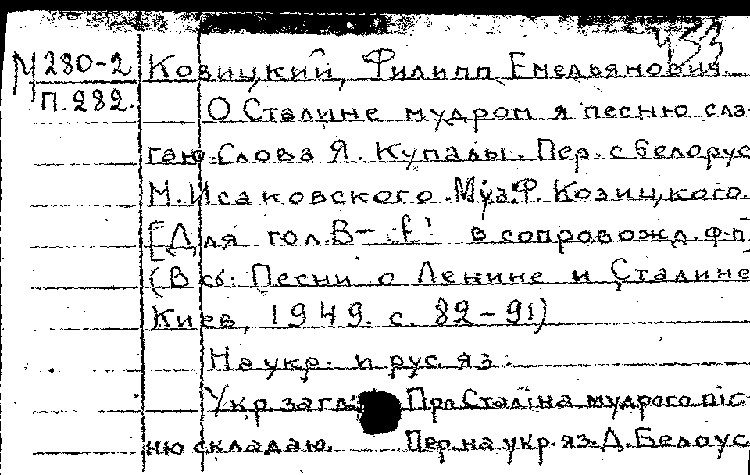 М 280-2 Козицкий, Филипп Емельянович
П. 282. О Сталине мудром я песню сла-
гаю. Слова Я. Купалы. Пер. с белорус
М. Исаковского. Муз. Ф. Козицкого.
[Для гол. B-f¹ в сопровожд. ф-п]
(В сб: Песни о Ленине и Сталине
Киев, 1949. с. 82-91)
На укр. и рус. яз.
Укр. загл.: Про Сталіна мудрого піс-
ню складаю. Пер. на укр. яз. Д. Белоус